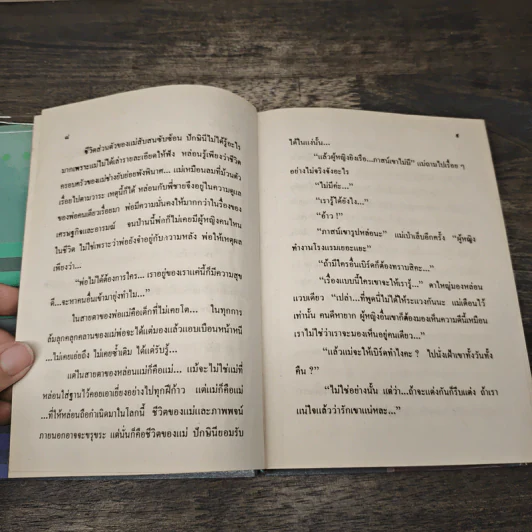 ๘
ชีวิตส่วนตัวของแม่สับสนซับซ้อน ปักษินีไม่ได้รู้อะไร
มากเพราะแม่ไม่ได้เล่ารายละเอียดให้ฟัง หล่อนรู้เพียงว่าชีวิต
ครอบครัวของแม่ช่างยับย่อยพังพินาศ... แม่เหมือนลมที่ม้วนตัว
เรื่อยไปตามวาระ เหตุนี้ก็ได้ หล่อนกับพี่ชายจึงอยู่ในความดูแล
ของพ่อคนเดียวเรื่อยมา พ่อมีความมั่นคงให้มากกว่าในเรื่องของ
เศรษฐกิจและอารมณ์ จนป่านนี้พ่อก็ไม่เคยมีผู้หญิงคนไหน
ในชีวิต ไม่ใช่เพราะว่าพ่อยังจำอยู่กับความหลัง พ่อให้เหตุผล
เพียงว่า...
"พ่อไม่ได้ต้องการใคร... เราอยู่ของเราแค่นี้ก็มีความสุข
ดี...จะหาคนอื่นเข้ามายุ่งทำไม..."
ในสายตาของพ่อแม่คือเด็กที่ไม่เคยโต... ในทุกการ
ล้มลุกคลุกคลานของแม่พ่อจะได้แต่มองแล้วแอบเบือนหน้าหนี
...ไม่เคยแย่ยิ่ง ไม่เคยซ้ำเติม ได้แต่รับรู้...
แต่ในสายตาของหล่อนแม่ก็คือแม่... แม้จะไม่ใช่แม่ที่
หล่อนใส่ฐานไว้คอยเอาเยี่ยงอย่างไปทุกฝีก้าว แต่แม่ก็คือแม่
...ที่ให้หล่อนถือกำเนิดมาในโลกนี้ ชีวิตของแม่และภาพพจน์
ภายนอกอาจจะขรุขระ แต่นั่นก็คือชีวิตของแม่ ปักษินียอมรับ
๙
ได้ในแง่นั้น...
"แล้วผู้หญิงยิงเรือ...ภาสน์เขาไม่มี" แม่ถามไปเรื่อย ๆ
อย่างไม่จริงจังอะไร
"ไม่มีค่ะ..."
"เรารู้ได้ยังไง..."
"อ้าว !"
"ภาสน์เขารูปหล่อนะ" แม่เบ้าเล็บอีกครั้ง "ผู้หญิง
ทำงานโรงแรมเยอะแยะ"
"ถ้ามีใครอื่นเบิร์ดก็ต้องทราบสิคะ..."
"เรื่องแบบนี้ใครเขาจะให้เรารู้..." ตาใหญ่มองหล่อน
แวบเดียว "เปล่า...ที่พูดนี่ไม่ได้ให้ระแวงกันนะ แม่เตือนไว้
เท่านั้น คนดีหายาก ผู้หญิงอื่นเขาก็ต้องมองเห็นความดีนี้เหมือน
เราไม่ใช่ว่าเราจะมองเห็นอยู่คนเดียว..."
"แล้วแม่จะให้เบิร์ดทำไงคะ ? ไปนั่งเฝ้าเขาทั้งวันทั้ง
คืน ?"
"ไม่ใช่อย่างนั้น แต่ว่า...ถ้าจะแต่งกันก็รีบแต่ง ถ้าเรา
แน่ใจแล้วว่ารักเขาแน่หละ..."